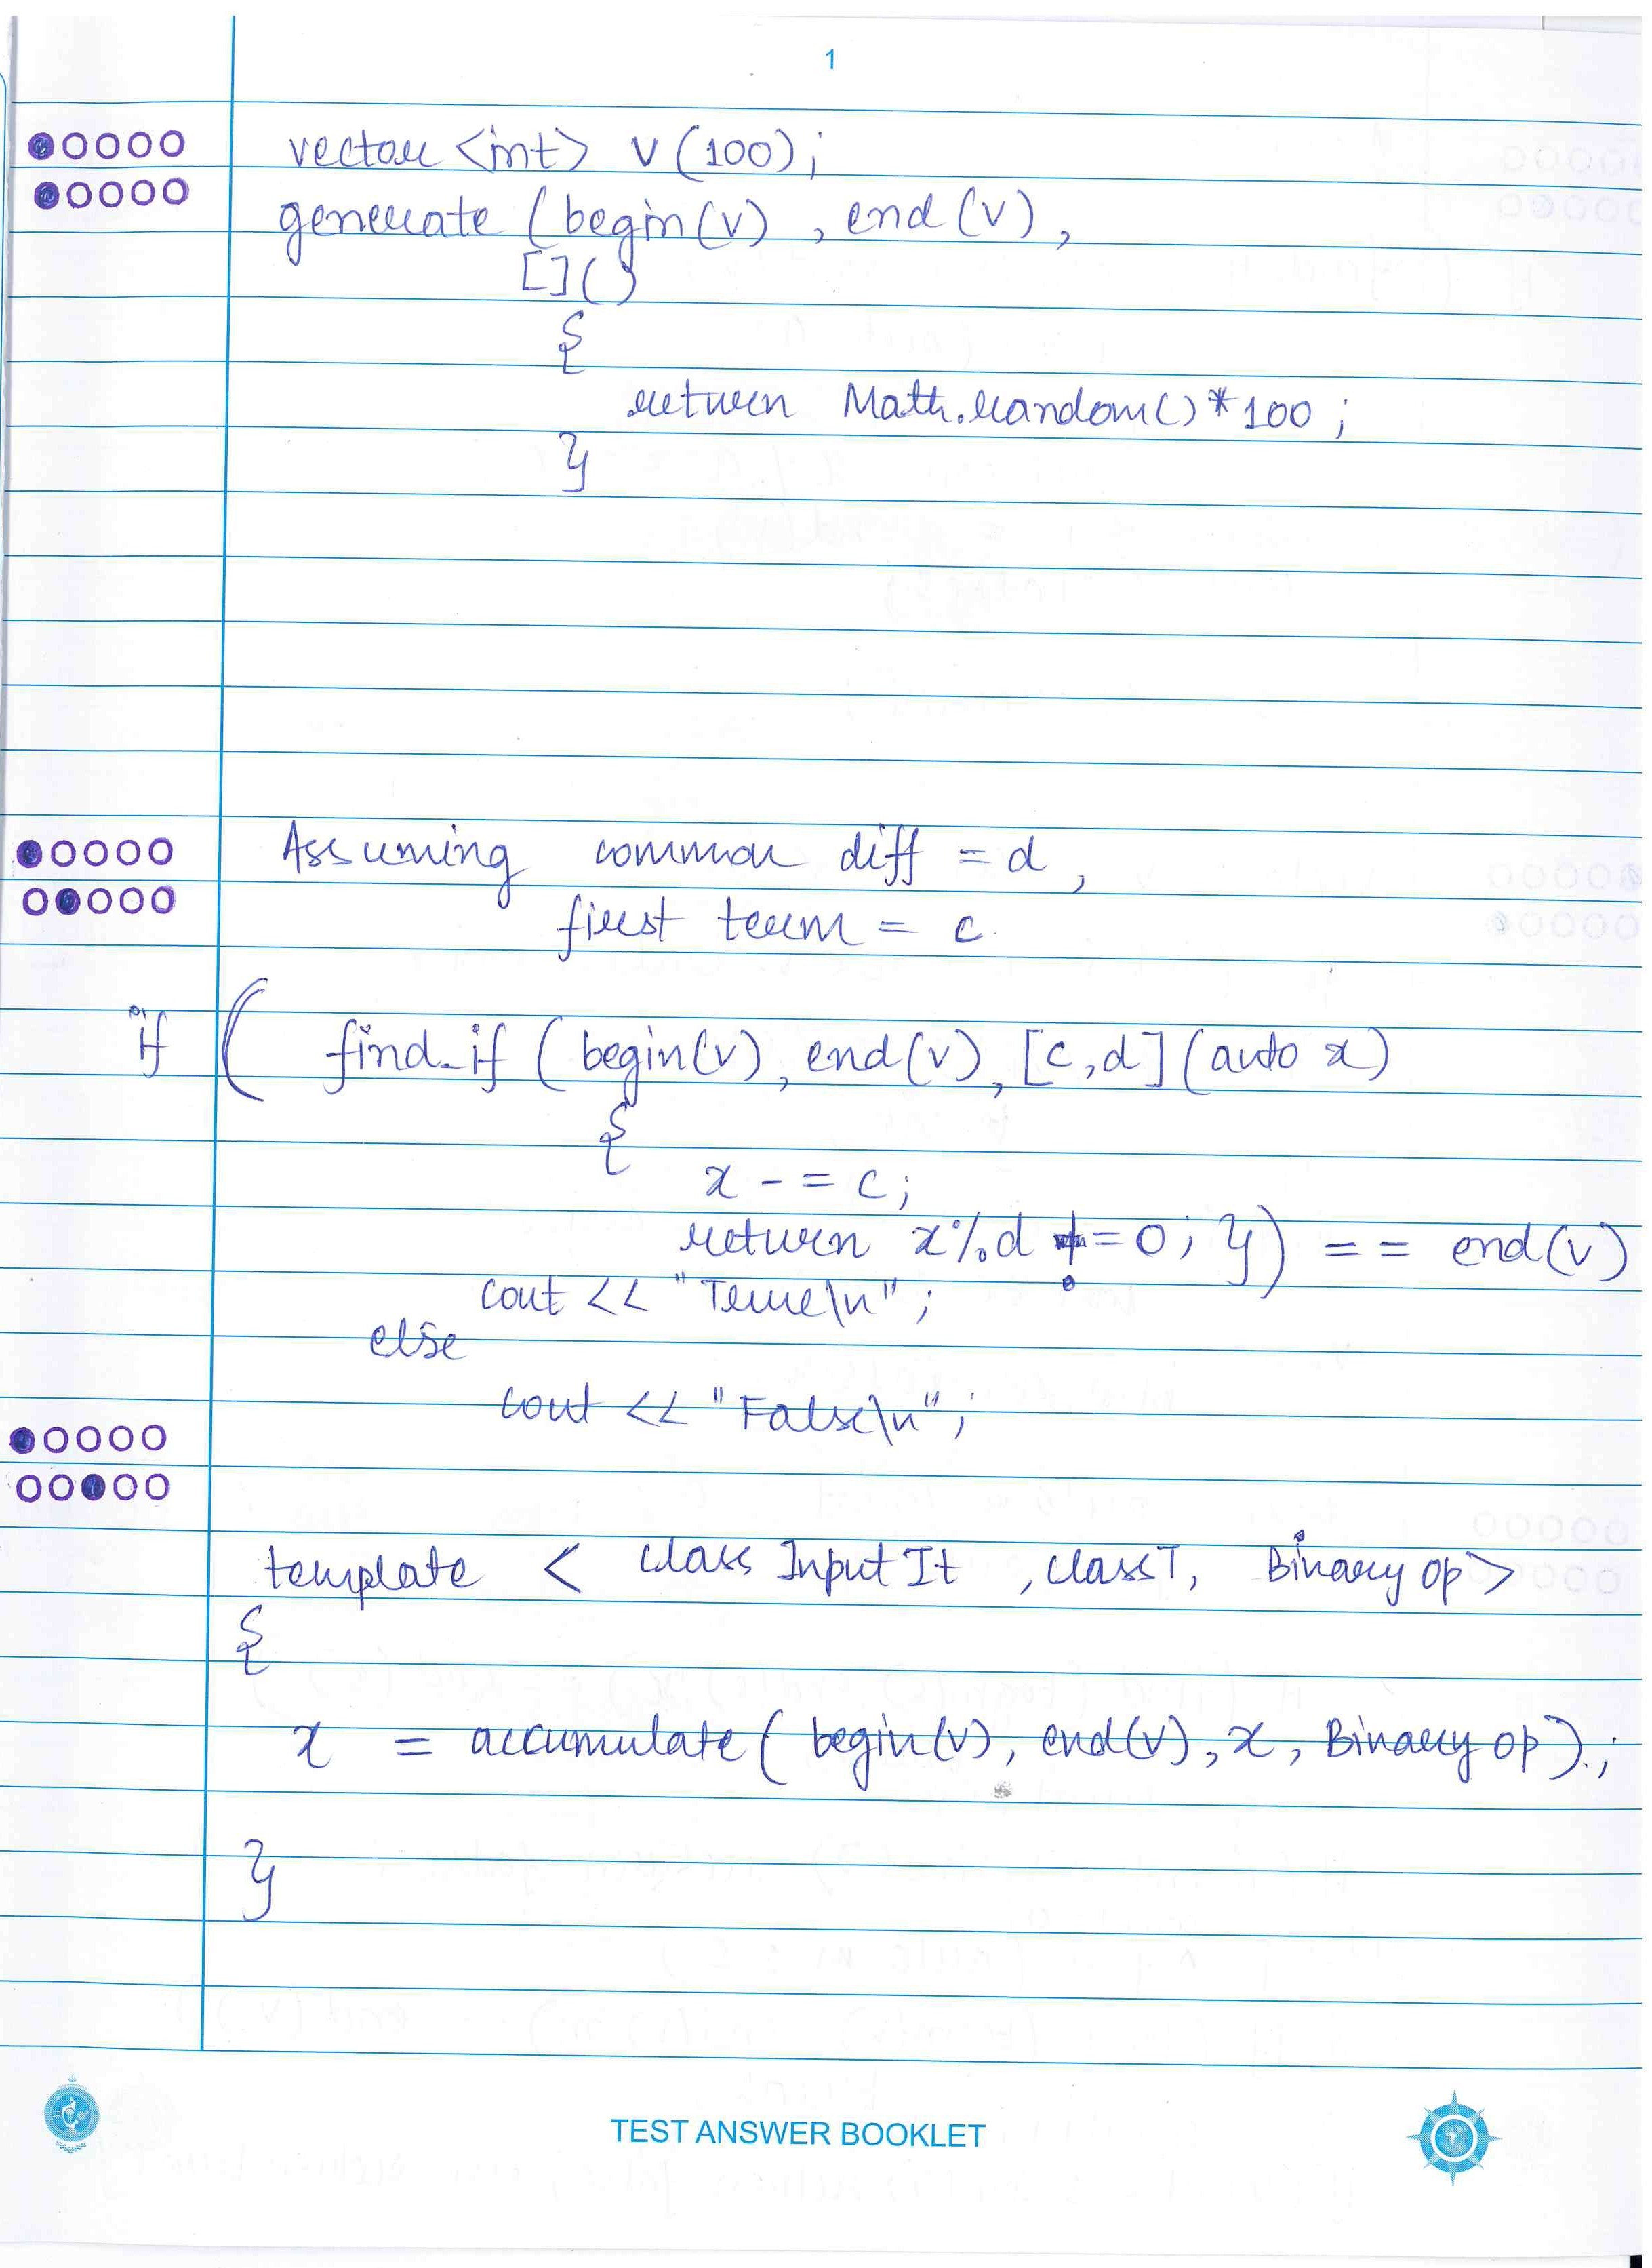 1
vector <int> v(100);
generate (begin(v), end(v),
[]()
{
return Math.random()*100;
}
Assuming common diff = d,
first term = c
if ( find_if (begin(v), end(v), [c,d](auto x)
{
x -= c;
return x%d != 0; }) == end(v)
cout << "True\n";
else
cout << "False\n";
template < class InputIt, class T, Binary op>
{
x = accumulate(begin(v), end(v), x, Binary op);
}
TEST ANSWER BOOKLET